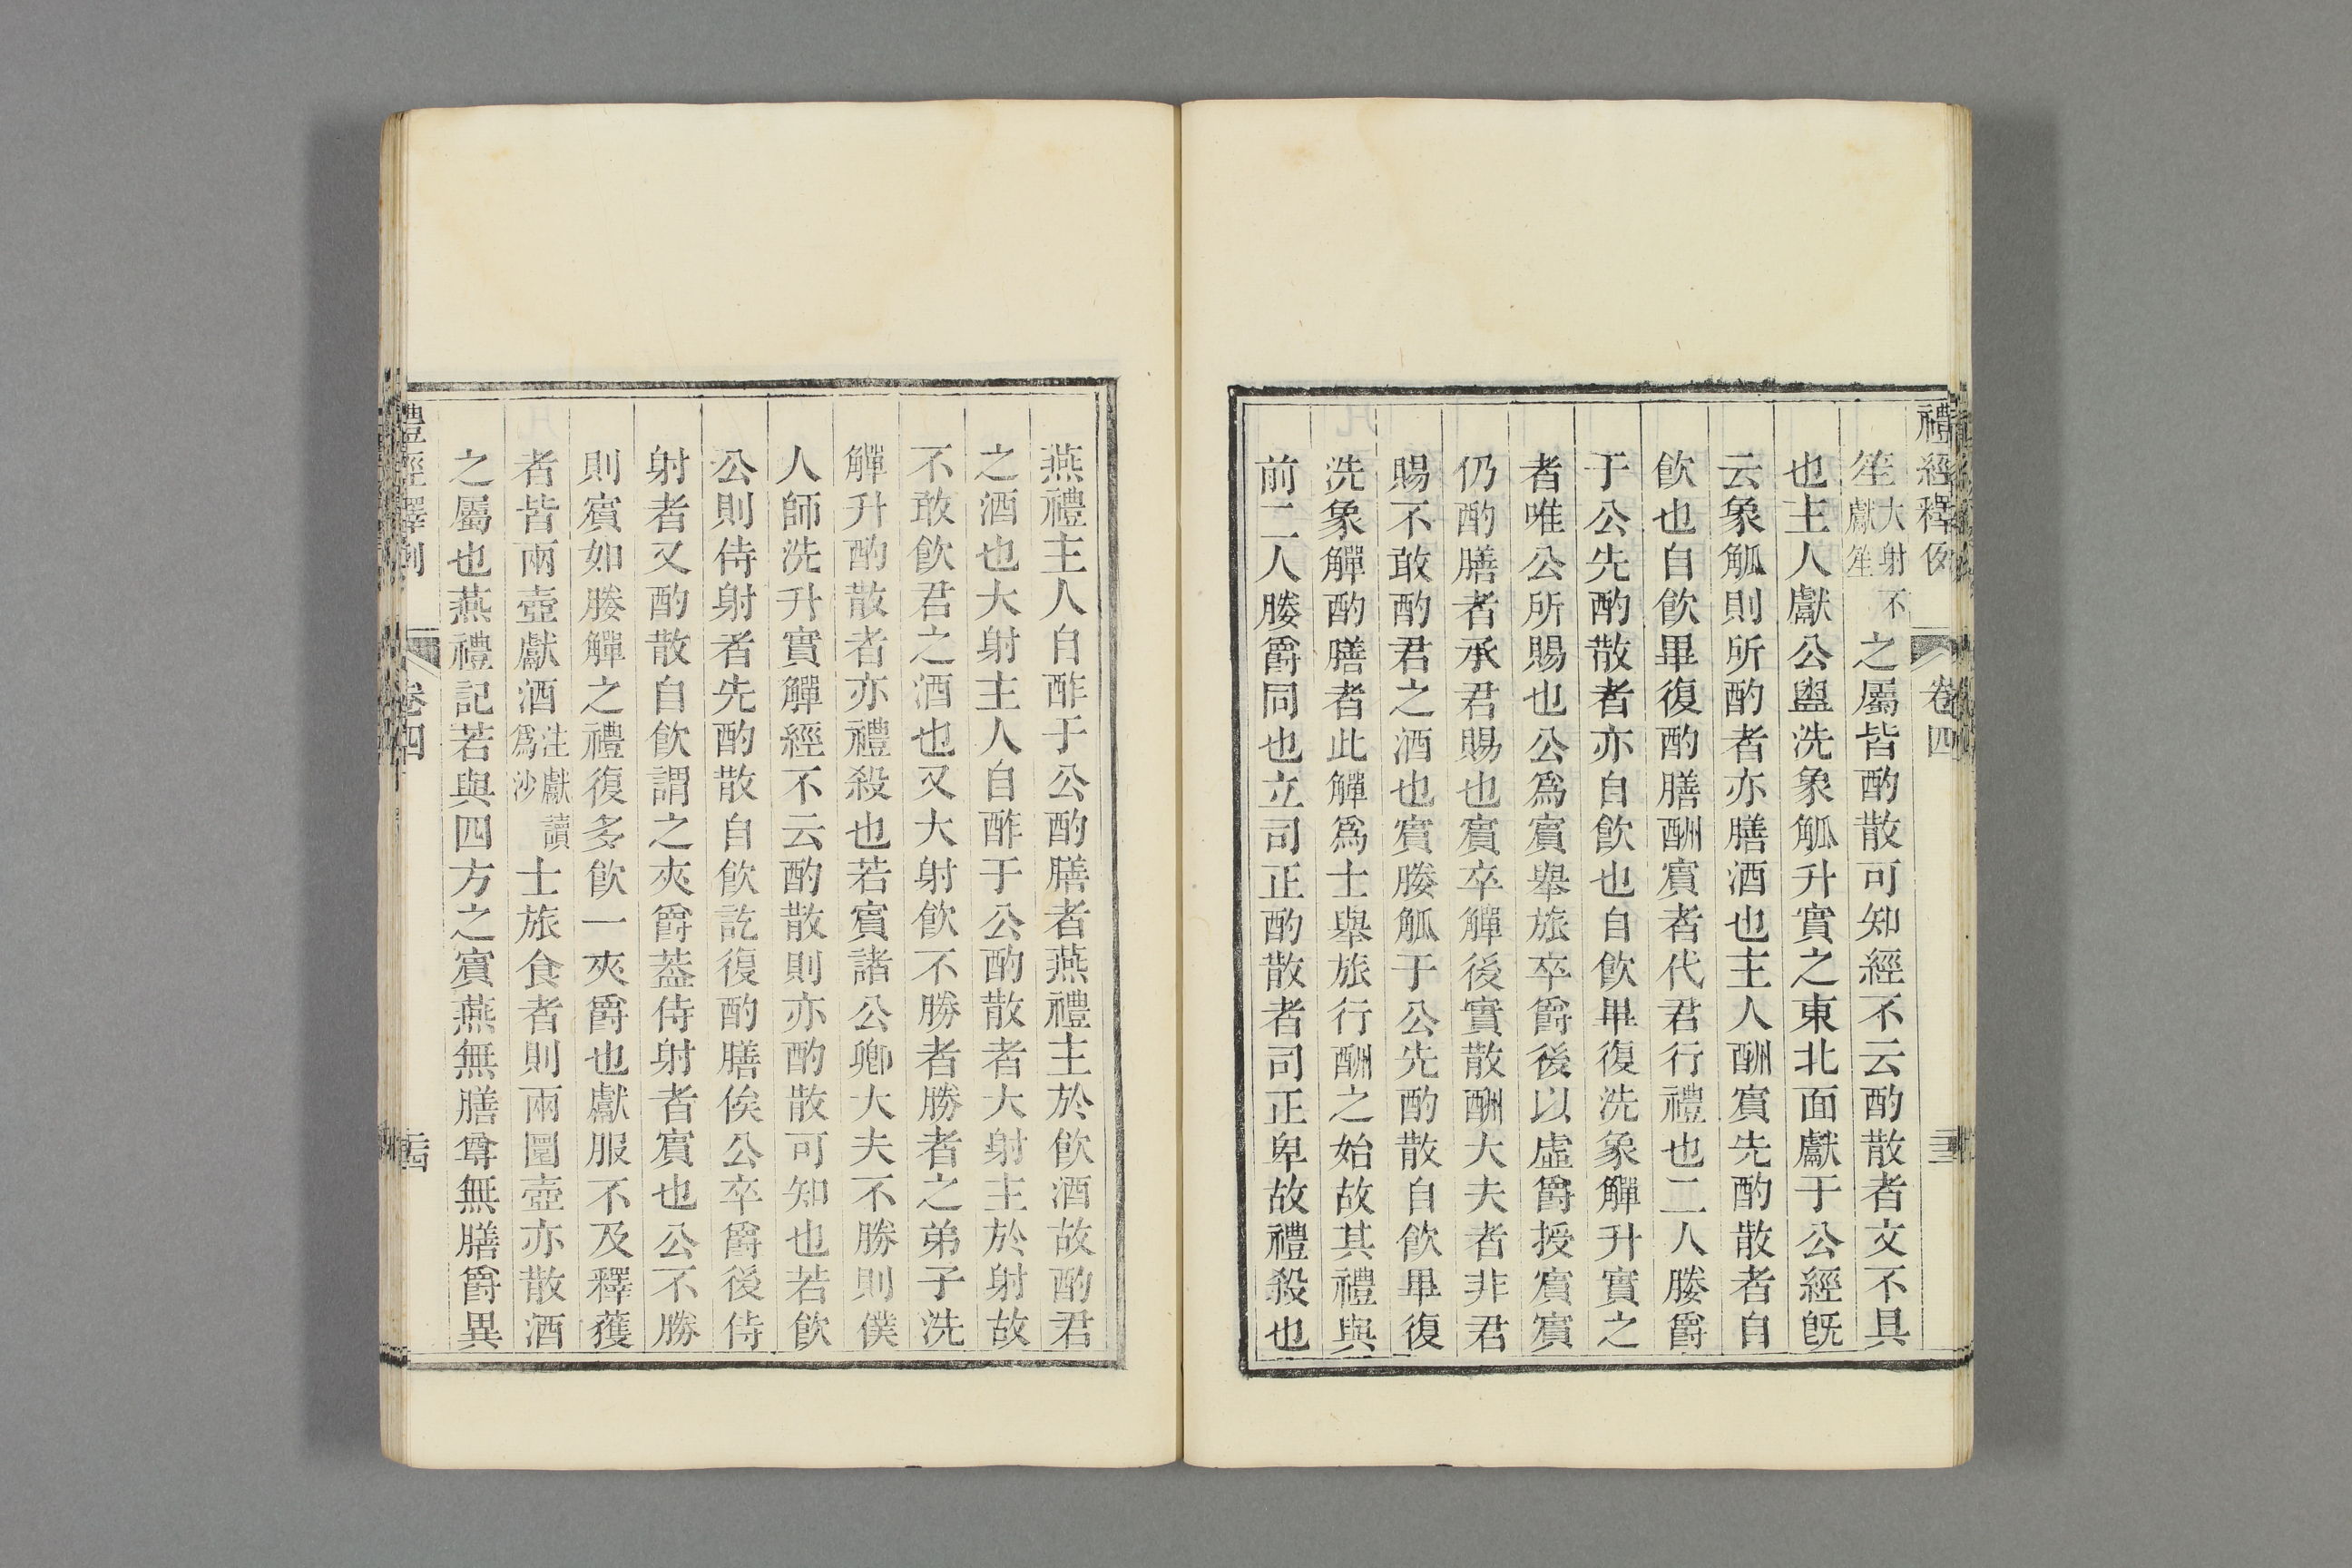 禮經釋例 卷四 三
笙大射不獻笙之屬皆酌散可知經不云酌散者文不具
也主人獻公盥洗象觚升實之東北面獻于公經既
云象觚則所酌者亦膳酒也主人酬賓先酌散者自
飲也自飲畢復酌膳酬賓者代君行禮也二人媵爵
于公先酌散者亦自飲也自飲畢復洗象觶升實之
者唯公所賜也公為賓舉旅卒爵後以虛爵授賓賓
仍酌膳者承君賜也賓卒觶後實散酬大夫者非君
賜不敢酌君之酒也賓媵觚于公先酌散自飲畢復
洗象觶酌膳者此觶為士舉旅行酬之始故其禮與
前二人媵爵同也立司正酌散者司正卑故禮殺也
燕禮主人自酢于公酌膳者燕禮主於飲酒故酌君
之酒也大射主人自酢于公酌散者大射主於射故
不敢飲君之酒也又大射飲不勝者勝者之弟子洗
觶升酌散者亦禮殺也若賓諸公卿大夫不勝則僕
人師洗升實觶經不云酌散則亦酌散可知也若飲
公則侍射者先酌散自飲訖復酌膳俟公卒爵後侍
射者又酌散自飲謂之夾爵葢侍射者賓也公不勝
則賓如媵觶之禮復多飲一夾爵也獻服不及釋獲
者皆兩壺獻酒注獻讀為沙士旅食者則兩圜壺亦散酒
之屬也燕禮記若與四方之賓燕無膳尊無膳爵異
禮經釋例 卷四 三四